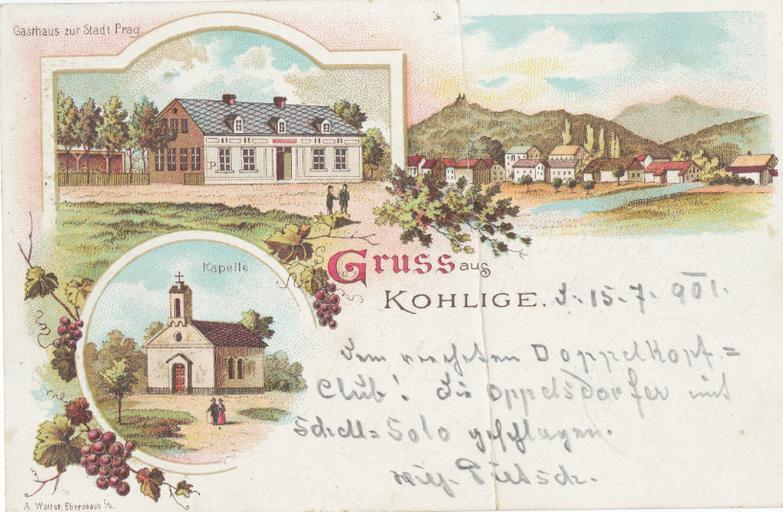 Gasthaus zur Stadt Prag.
Kapelle
Gruss aus
KOHLIGE. d. 15.7. 901.
Dem werthen Doppelkopf=
Club! Die Oppelsdorfer mit
Schell=Solo geschlagen.
A. Wolfst, Ebersbach i/S.